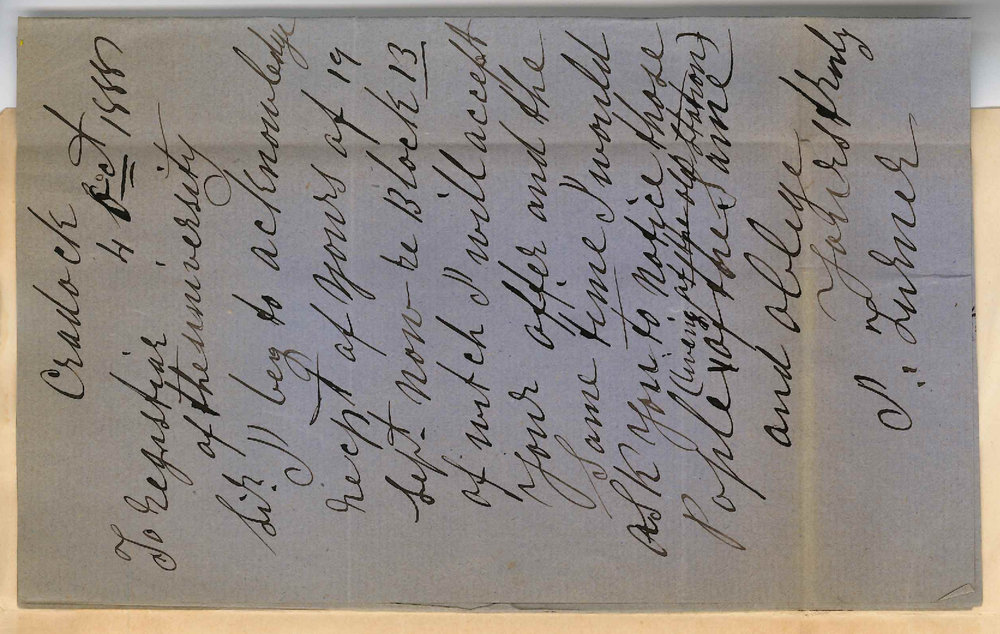 Cradock
4 Oct 1888
To Registrar
of the university
Sir, I beg to acknowledge
recpt of yours of 19
Sept now re Block 13
of witch I will accept
your offer and the
Same time I would
ask you to notice those
(living at the old Station)
Pople of the Same
and oblege
Yours truly
J. Turner